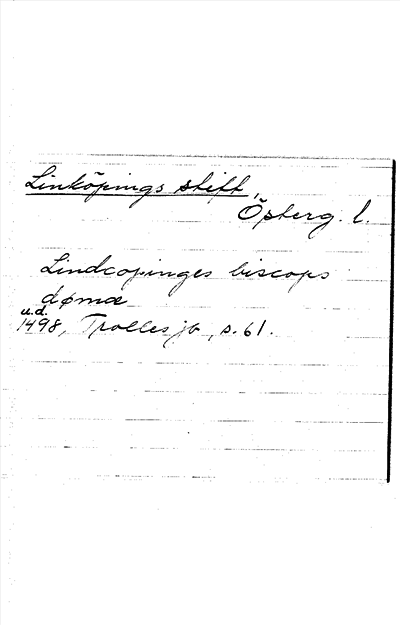 Linköpings stift,
Österg. l.
Lindcopinges biscops
dømæ
u.d.
1498, Trolles jb, s. 61.